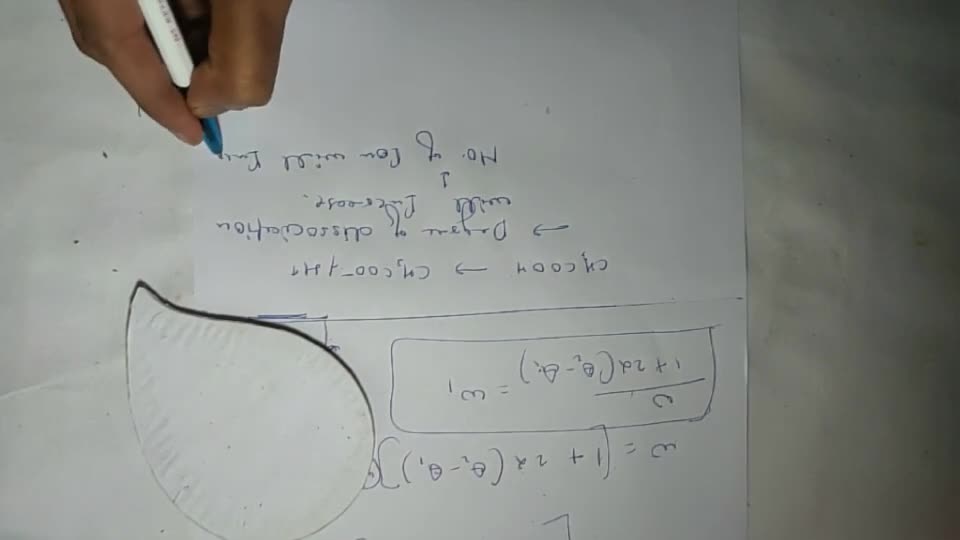 ω = [1 + 2α (θ₂ - θ₁)]
ω / 1 + 2α (θ₂ - θ₁) = ω₁
CH₃COOH → CH₃COO⁻ + H⁺
→ Degree of dissociation
will increase.
↓
No. of ion will